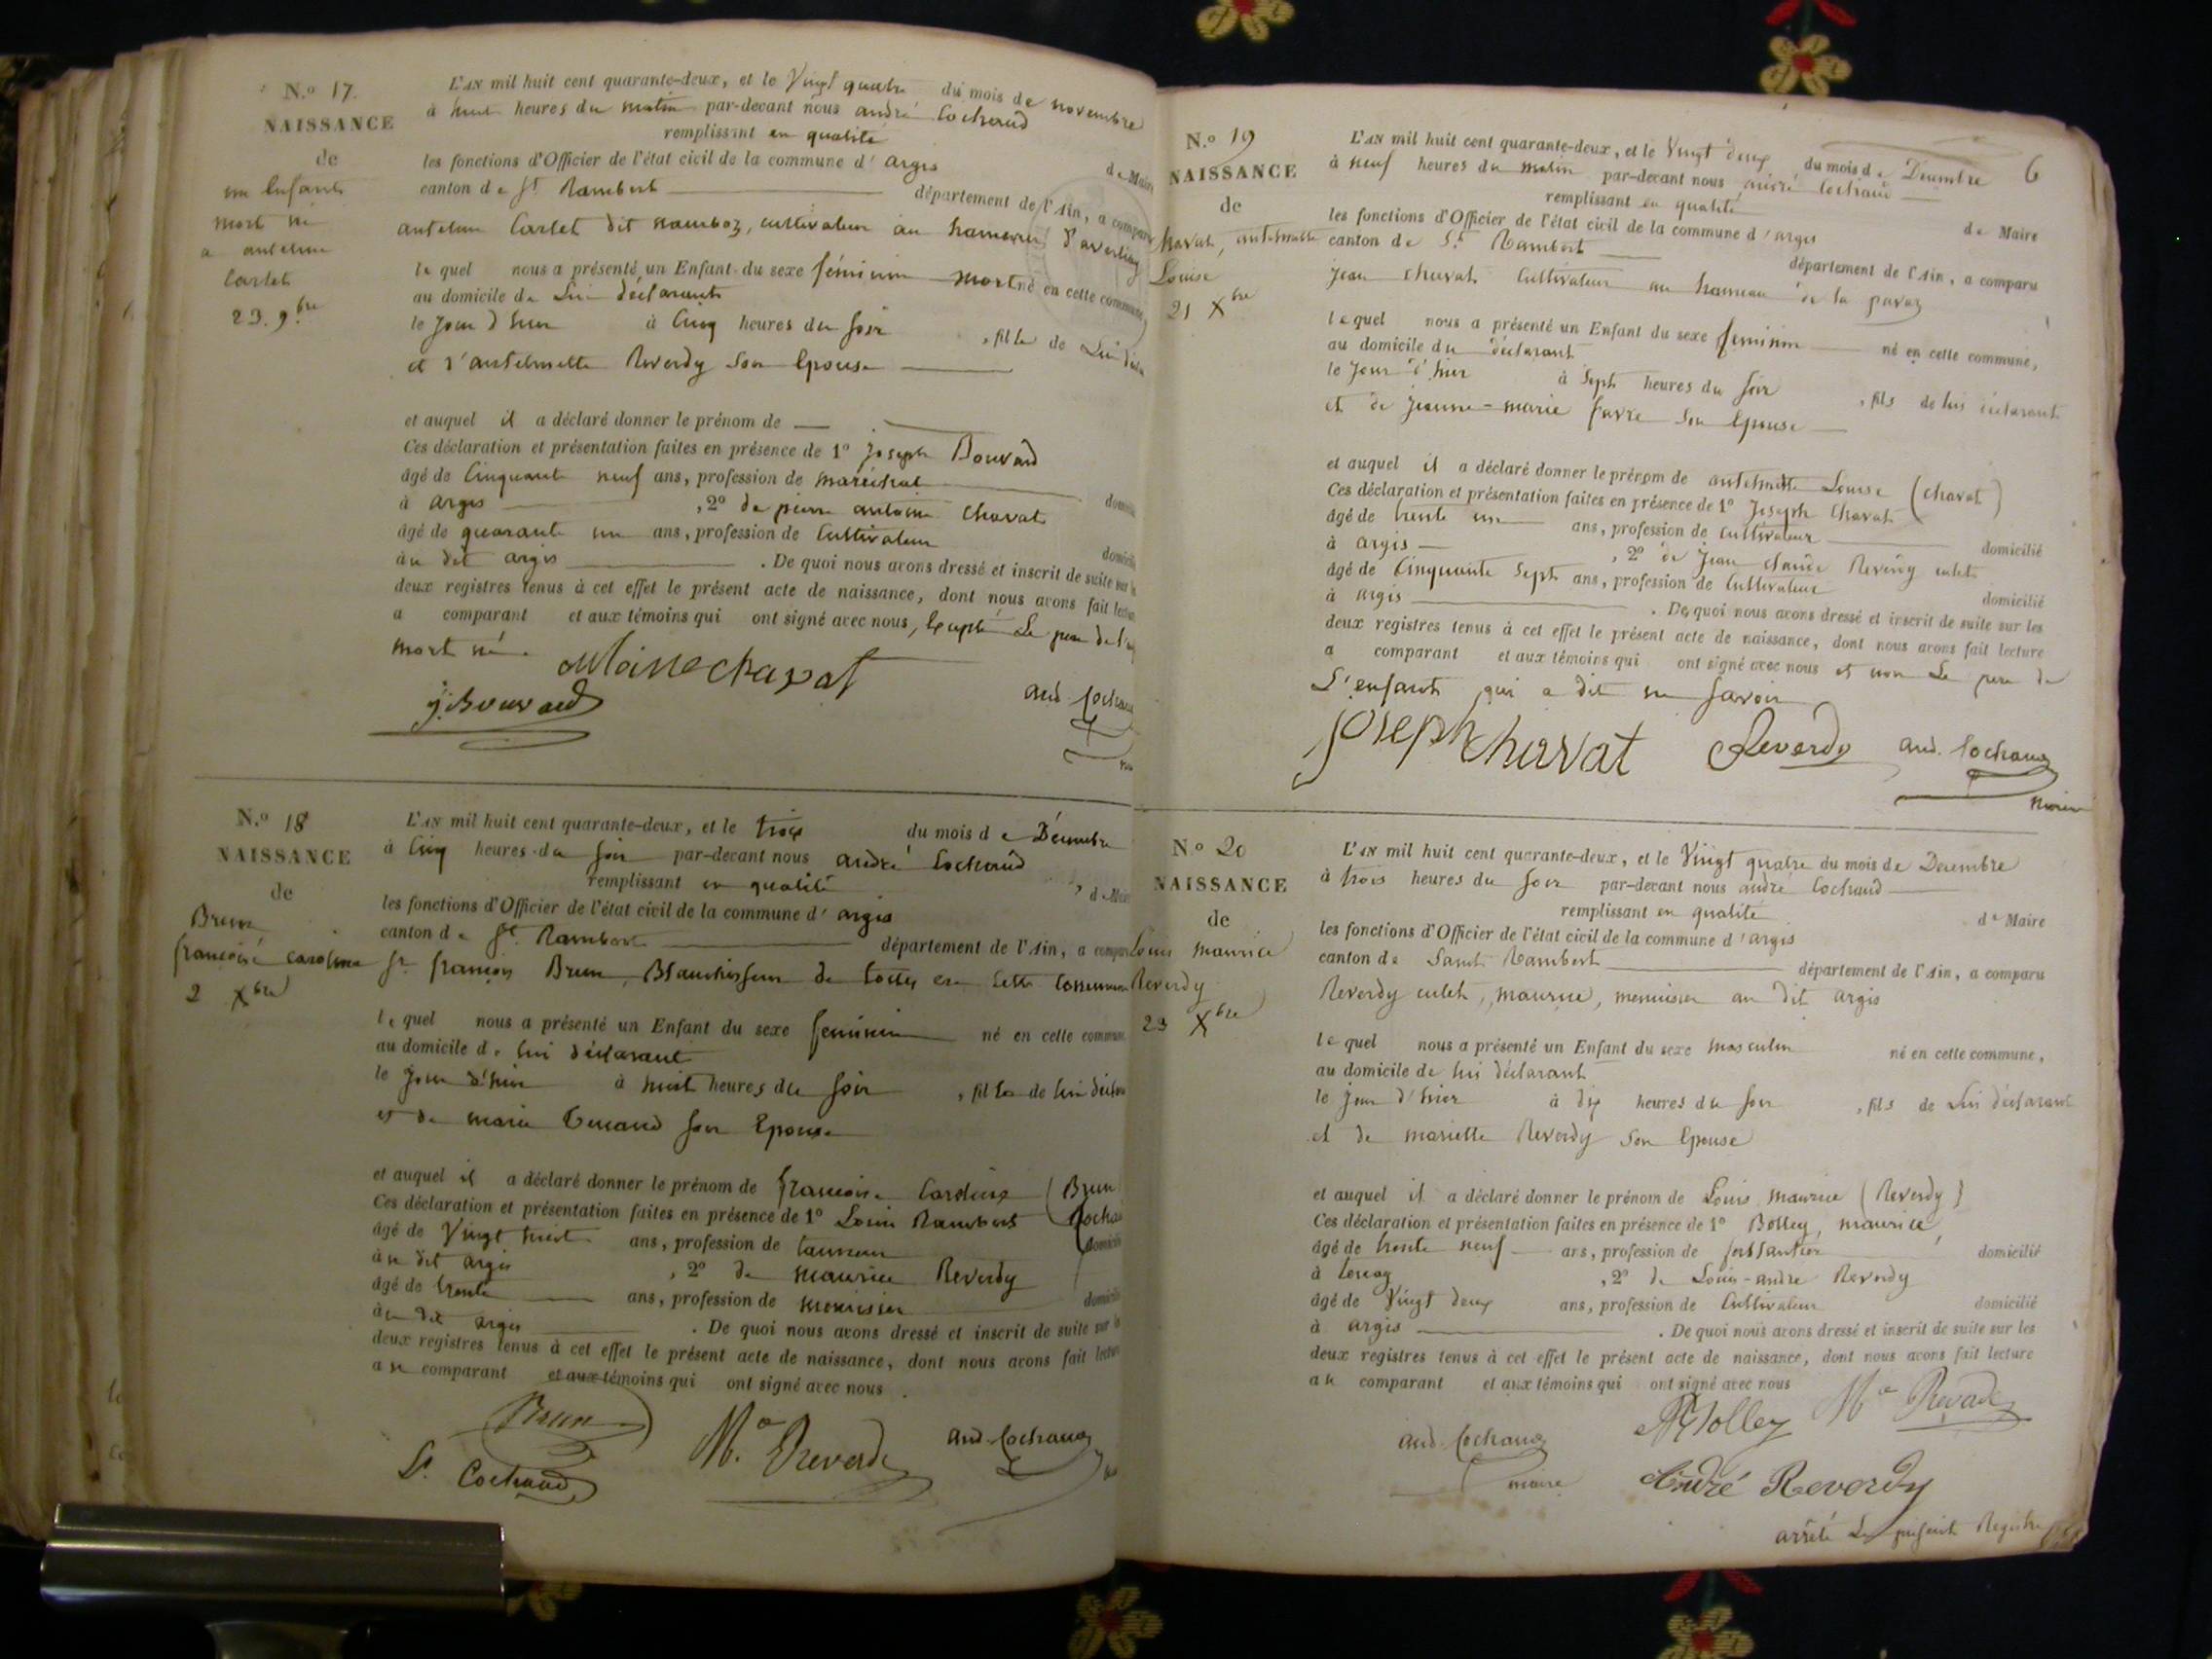 N.º 17.
NAISSANCE
de
un Enfant
mort né
a antelme
Carlet
23. 9.bre
L'AN mil huit cent quarante-deux, et le Vingt quatre du mois de novembre
à huit heures du matin par-devant nous andré Cochaud
remplissant en qualité
les fonctions d'Officier de l'état civil de la commune d' argis de Maire
canton de St. Rambert département de l'Ain, a comparu
antelme Carlet dit namboz, cultivateur au hameau d'averliaz
le quel nous a présenté un Enfant du sexe féminin mort né en cette commune,
au domicile de Lui déclarant
le jour d'hier à Cinq heures du soir , fille de Lui
et d'antelmette Reverdy son Epouse
et auquel il a déclaré donner le prénom de
Ces déclaration et présentation faites en présence de 1º joseph Bouvard
âgé de Cinquante neuf ans, profession de maréchal
à argis , 2º de pierre antoine Chavat
âgé de quarante un ans, profession de Cultivateur
au dit argis . De quoi nous avons dressé et inscrit de suite sur
deux registres tenus à cet effet le présent acte de naissance, dont nous avons fait
a comparant et aux témoins qui ont signé avec nous, Excepté Le pere de
mort né.
chavat
j. Bouvard
and. Cochaud
N.º 18
NAISSANCE
de
Brun
francoise caroline
2 Xbre
L'AN mil huit cent quarante-deux, et le trois du mois de Décembre
à Cinq heures du soir par-devant nous andré Cochaud
remplissant en qualité de Maire
les fonctions d'Officier de l'état civil de la commune d' argis
canton de St. Rambert département de l'Ain, a comparu
Sr. françois Brun, Blanchisseur de toiles en cette Commune
le quel nous a présenté un Enfant du sexe feminin né en cette commune
au domicile de lui déclarant
le jour d'hier à huit heures du soir , fille de lui
et de marie son Epouse
et auquel il a déclaré donner le prénom de francoise Caroline (Brun
Ces déclaration et présentation faites en présence de 1º Louis Rambert
âgé de Vingt huit ans, profession de tanneur
au dit argis , 2º de maurice Reverdy
âgé de trente ans, profession de menuisier
au dit argis . De quoi nous avons dressé et inscrit de suite sur
deux registres tenus à cet effet le présent acte de naissance, dont nous avons fait
au comparant et aux témoins qui ont signé avec nous .
Brun
L. Cochaud
M.ce Reverdy
and. Cochaud
6
N.º 19
NAISSANCE
de
havat, antelmette
Louise
21 Xbre
L'AN mil huit cent quarante-deux, et le Vingt deux du mois de Decembre
à neuf heures du matin par-devant nous andré Cochaud
remplissant en qualité
les fonctions d'Officier de l'état civil de la commune d' argis de Maire
canton de St. Rambert département de l'Ain, a comparu
jean chavat Cultivateur au hameau de la pavaz
le quel nous a présenté un Enfant du sexe feminin né en cette commune,
au domicile du déclarant
le jour d'hier à sept heures du soir , fils de lui déclarant
et de jeanne-marie favre son Epouse
et auquel il a déclaré donner le prénom de antelmette Louise (chavat)
Ces déclaration et présentation faites en présence de 1º Joseph Chavat
âgé de trente un ans, profession de cultivateur
à argis domicilié
, 2º de jean claude Reverdy culet
âgé de Cinquante Sept ans, profession de Cultivateur
à argis domicilié
. De quoi nous avons dressé et inscrit de suite sur les
deux registres tenus à cet effet le présent acte de naissance, dont nous avons fait lecture
a comparant et aux témoins qui ont signé avec nous et non Le pere de
L'enfant qui a dit ne savoir
joseph Chavat Reverdy and. Cochaud
maire
N.º 20
NAISSANCE
de
Louis maurice
Reverdy
23 Xbre
L'AN mil huit cent quarante-deux, et le Vingt quatre du mois de Decembre
à trois heures du soir par-devant nous andré Cochaud
remplissant en qualité de Maire
les fonctions d'Officier de l'état civil de la commune d' argis
canton de Saint Rambert département de l'Ain, a comparu
Reverdy culet, maurice, menuisier au dit argis
le quel nous a présenté un Enfant du sexe masculin né en cette commune,
au domicile de lui déclarant
le jour d'hier à dix heures du soir , fils de Lui déclarant
et de mariette Reverdy son Epouse
et auquel il a déclaré donner le prénom de Louis maurice (Reverdy)
Ces déclaration et présentation faites en présence de 1º Bolley, maurice,
âgé de trente neuf ans, profession de domicilié
à , 2º de Louis-andré Reverdy
âgé de Vingt deux ans, profession de Cultivateur domicilié
à argis . De quoi nous avons dressé et inscrit de suite sur les
deux registres tenus à cet effet le présent acte de naissance, dont nous avons fait lecture
au comparant et aux témoins qui ont signé avec nous
Bolley M.ce Reverdy
and. Cochaud
maire
André Reverdy
arrêté Le présent Registre